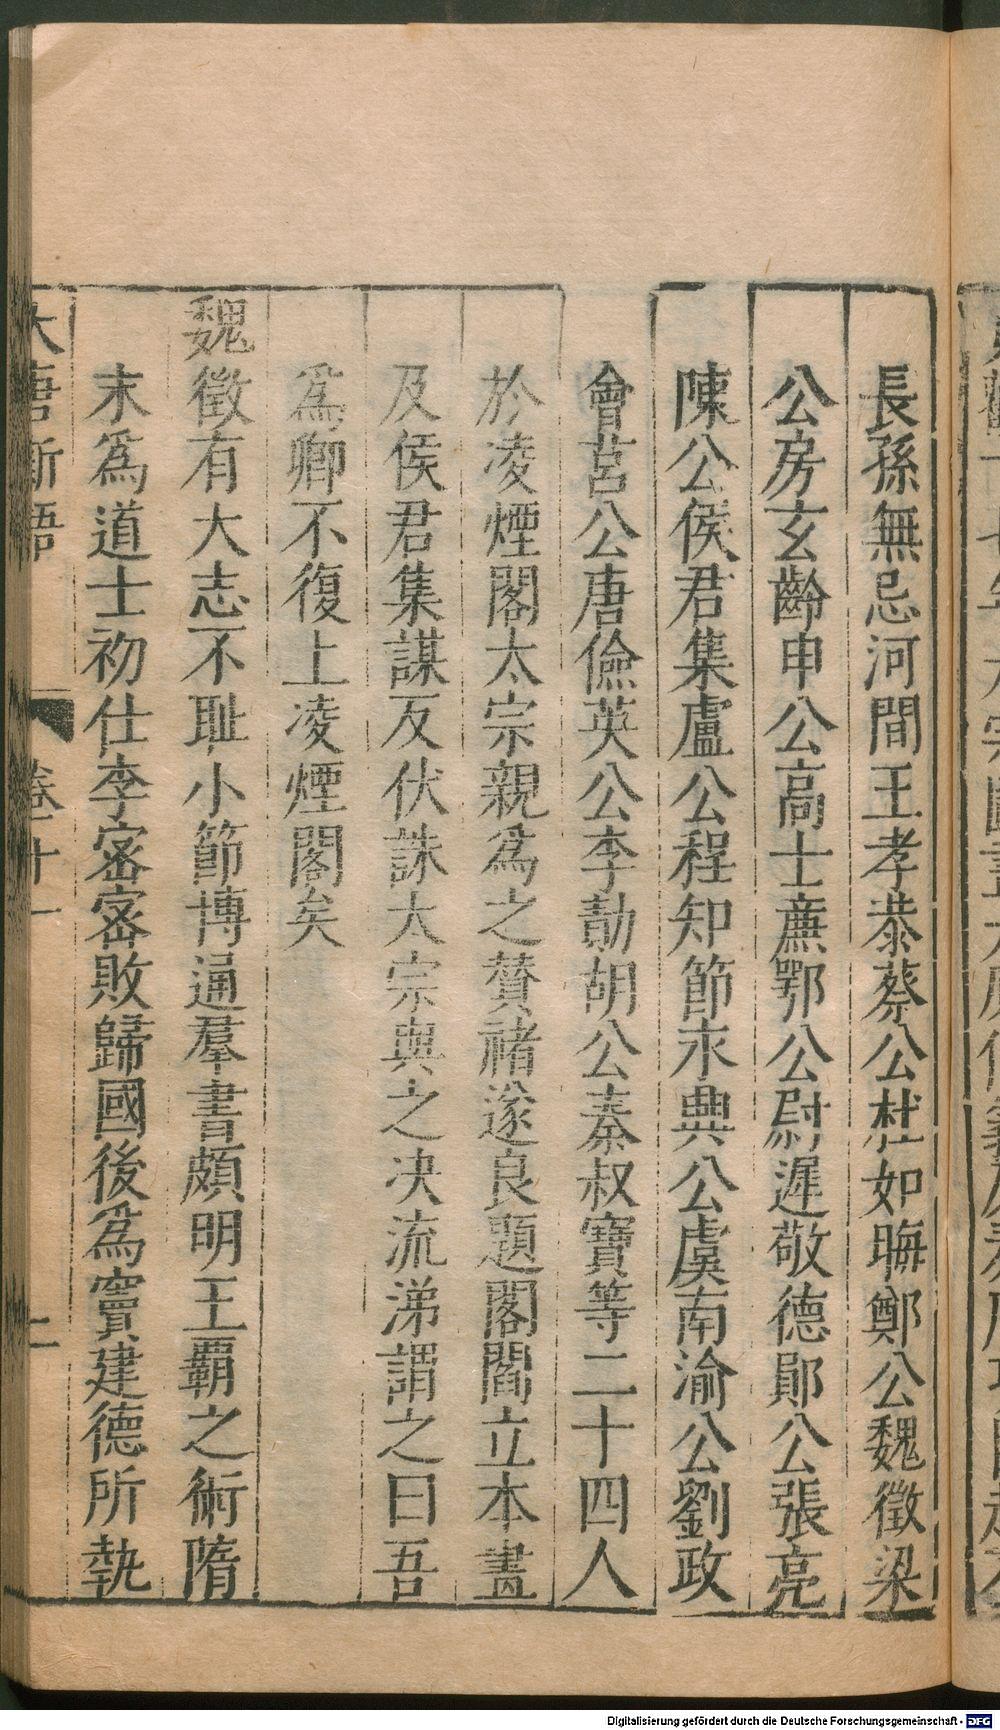 長孫無忌河間王孝恭蔡公杜如晦鄭公魏徵梁
公房玄齡申公高士廉鄂公尉遲敬德鄖公張亮
陳公侯君集盧公程知節永興公虞南渝公劉政
會莒公唐儉英公李勣胡公秦叔寶等二十四人
於凌煙閣太宗親爲之贊禇遂良題閣閻立本畫
及侯君集謀反伏誅太宗與之决流涕謂之曰吾
爲卿不復上凌煙閣矣
魏徵有大志不耻小節博通羣書頗明王霸之術隋
末爲道士初仕李密密敗歸國後爲竇建德所執
大唐新語 卷十一 二
Digitalisierung gefördert durch die Deutsche Forschungsgemeinschaft - DFG